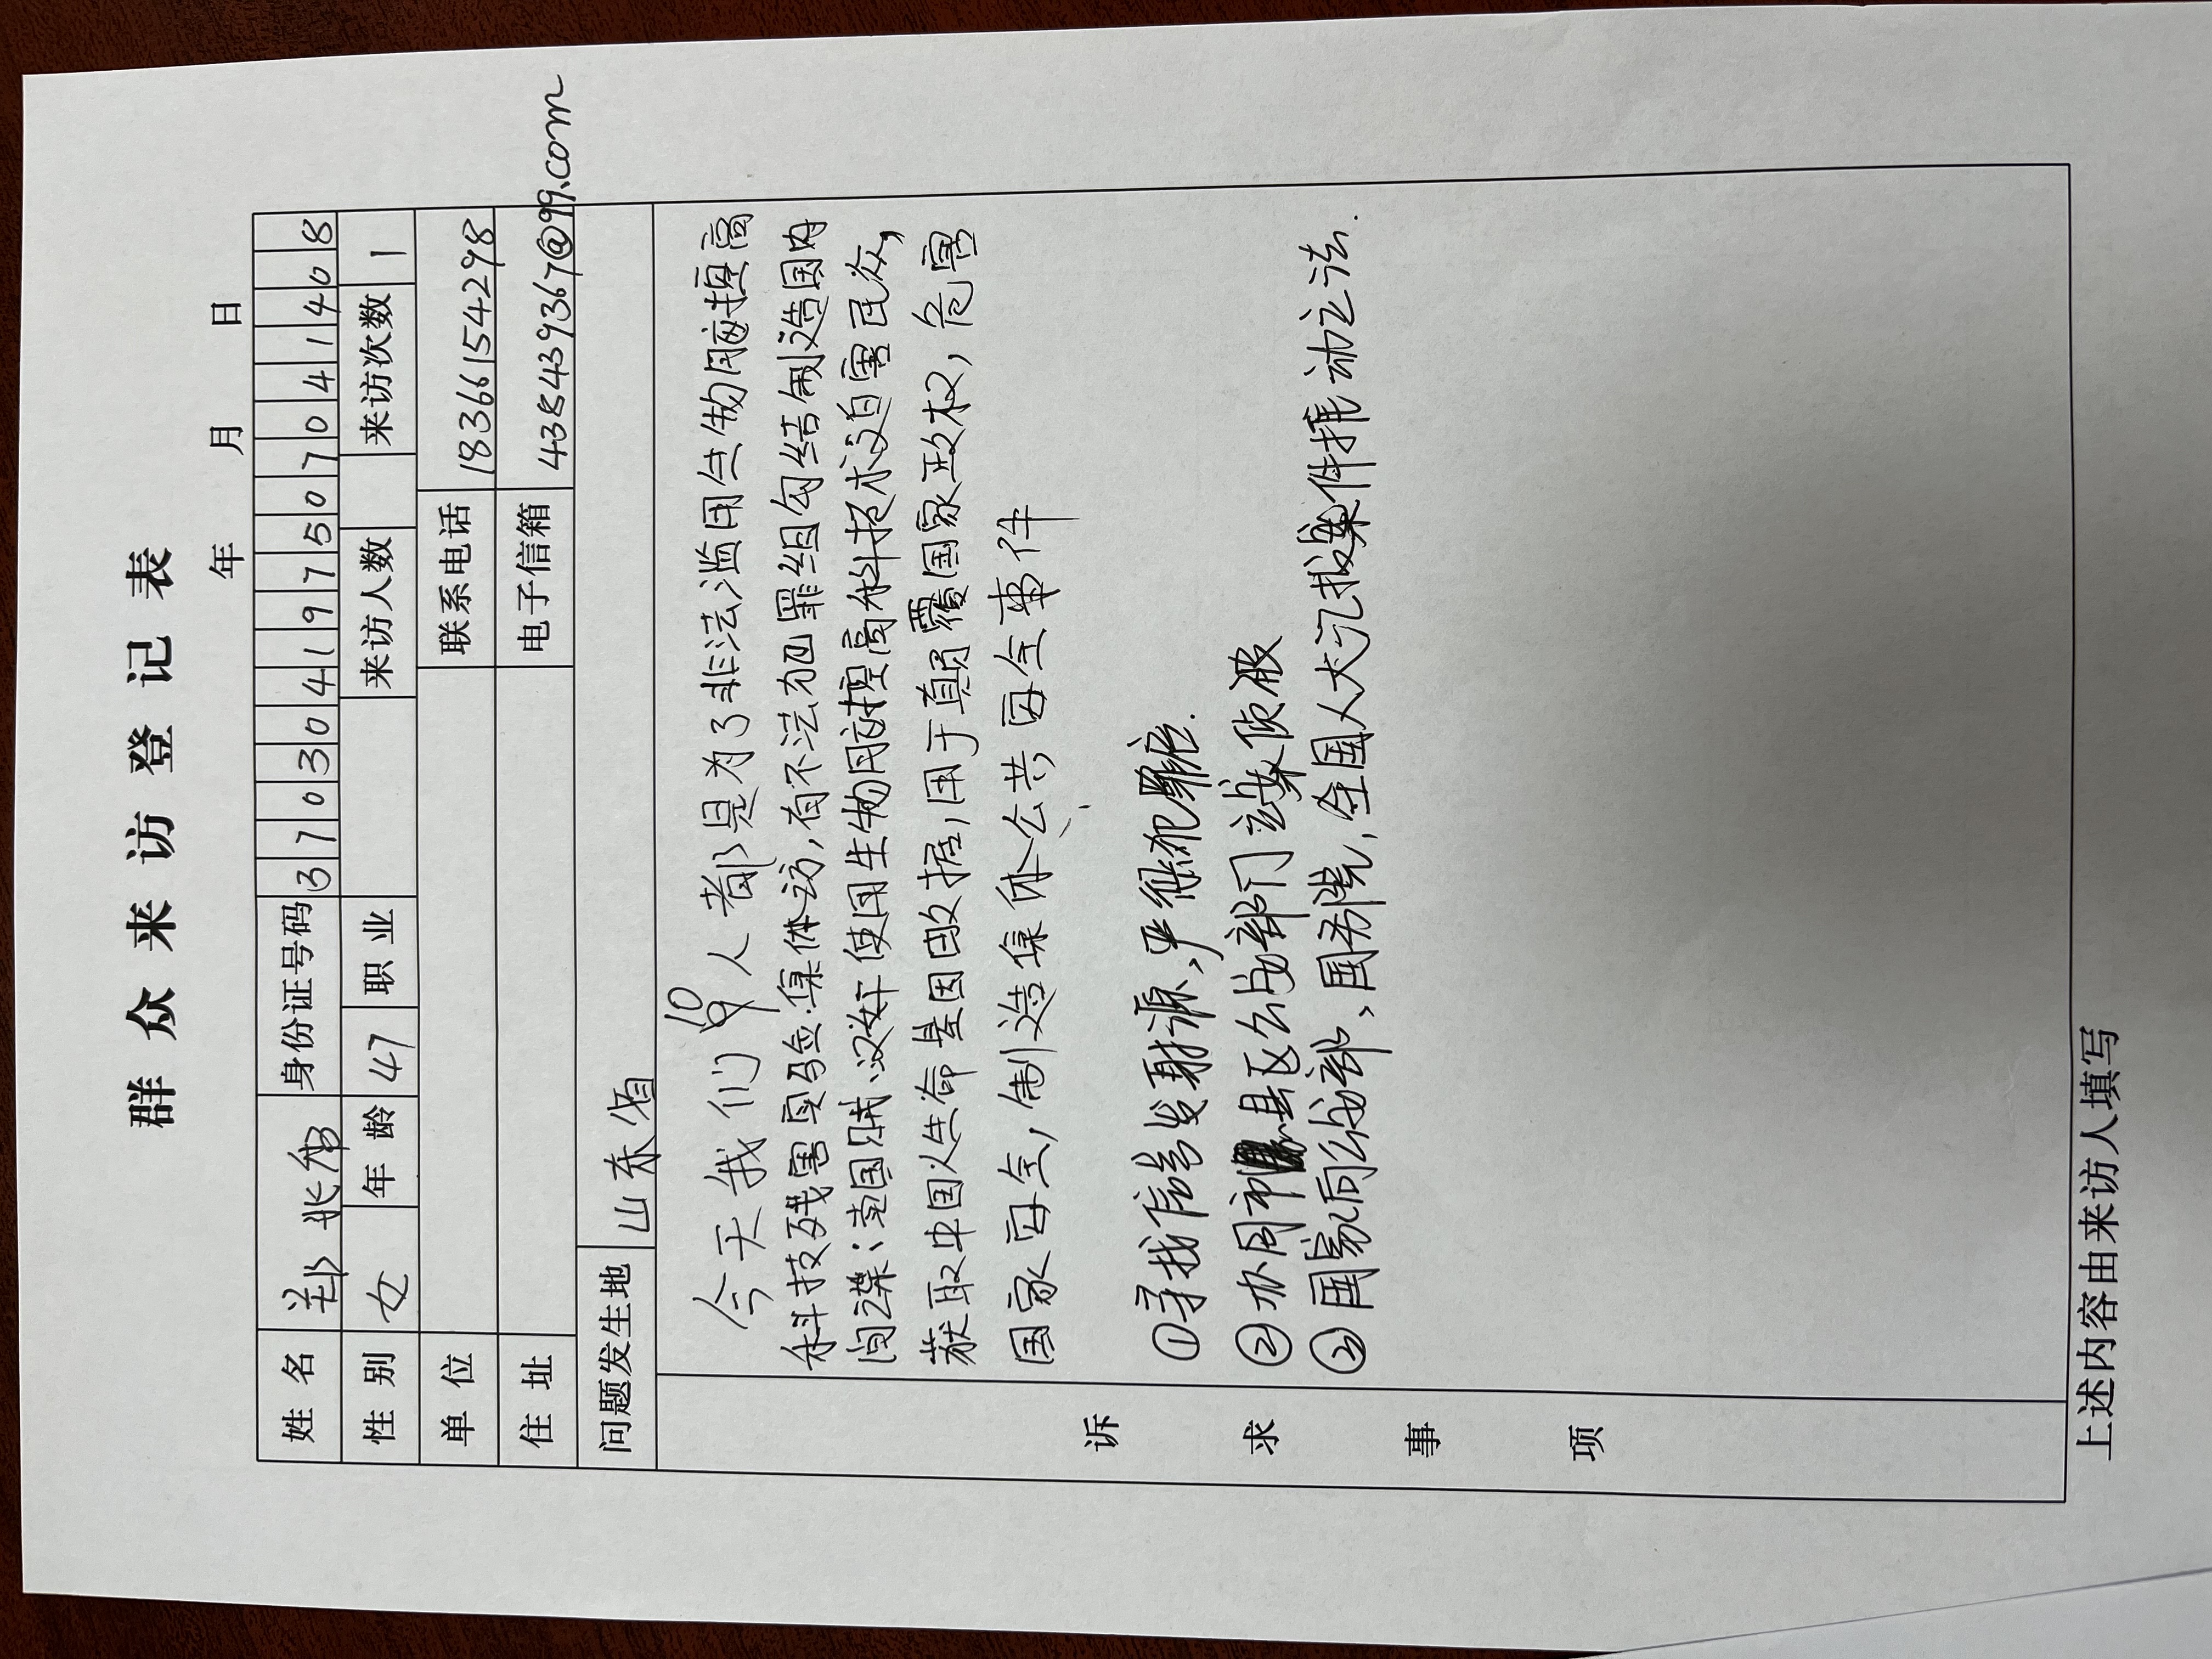 群众来访登记表
年 月 日
姓名 郑兆香 身份证号码 370304197507041408
性别 女 年龄 47 职业 来访人数 来访次数 1
单位 联系电话 18366154298
住址 电子信箱 438439367@99.com
问题发生地 山东省
诉求事项
10
今天我们9人都是为了非法滥用生物脑控高
科技残害实验.集体访,有不法犯罪组勾结制造国内
间谍;卖国贼、汉奸使用生物脑控高科技术迫害民众,
获取中国人生命基因数据,用于颠覆国家政权,危害
国家安全,制造集体公共安全事件
①寻找信号发射源,严惩犯罪.
②办同市县区公安部门立案侦破
③国家向公安部、国务院,全国人大汇报案件推动立法.
上述内容由来访人填写